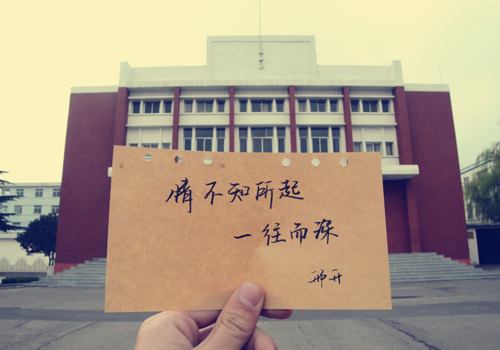 情不知所起
一往而深
邢开